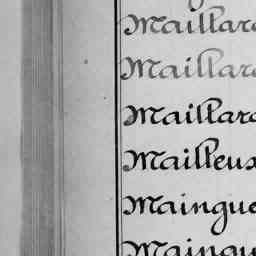 Maillard
Maillard
Maillard
Mailleux
Maingue
Maingu